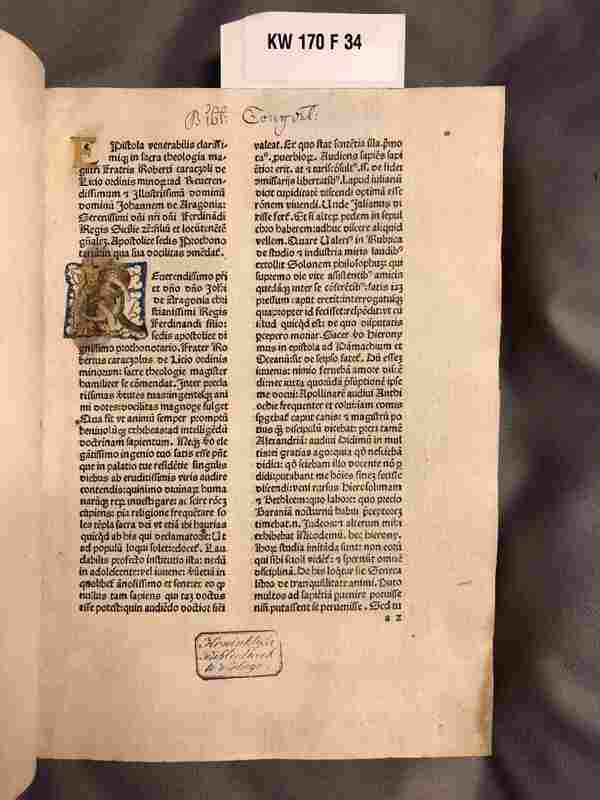 KW 170 F 34
Bibl: Tongrl:
EPistola venerabilis clarissi-
miqꝫ in sacra theologia ma-
gistri Fratris Roberti caraczoli de
Licio ordinis minoꝝ ad Reueren-
dissimum ⁊ Illustrissimū dominū
dominū Johannem de Aragonia:
Serenissimi dñi nr̄i dñi Ferdinādi
Regis Sicilie
Apostolice sedis Prothono
tarium qua sua docilitas
REuerendissimo pr̄i
et dño dño Johi
de Aragonia chri
stianissimi Regis
Ferdinandi filio:
sedis apostolice di
gnissimo prothonotario. Frater Ro
bertus caraczolus de Licio ordinis
minorum: sacre theologie magister
humiliter se cōmendat. Inter precla
rissimas
mi dotes: docilitas magnope fulget
Qua fit vt animū semper promptū
beniuolūqꝫ exhibeas ad intelligēdū
doctrinam sapientum. Neqꝫ vo ele
gātissimo ingenio tuo satis esse
que in palatio tue residētie singulis
diebus ab eruditissimis viris audire
contendis: quinimo diuinaꝝ huma
narūqꝫ reꝝ inuestigare: ac scire
cupiens: pia religione frequētare so
les tēpla sacra dei vt etiā ibi haurias
quicqd ab his qui declamatores: Ut
ad populū loqui solet: docet. Lau
dabilis profecto institutio ista: nedū
in adolescente vel iuuene: veꝝetiā in
quolibet ānosissimo et senetute
nullus tam sapiens qui tā doctus
esse potest: quin audiēdo doctior fieri
valeat. Ex quo stat sentētia illa
Audiens sapiēs sapi
ētior erit. at
Lapud iulianū
dicit cupiditatē discendi optimā esse
rōnem viuendi. Unde Julianus di
xisse fert. Et si alteꝝ pedem in sepul
chro haberem: adhuc discere aliquid
vellem. Quare Ualerꝰ in Rubrica
de studio ⁊ industria miris laudibꝰ
extollit Solonem philosophum: qui
supremo die vite assistentibꝰ amicis
quedāqꝫ inter se cōferētibꝰ: fatis iaꝫ
pressum caput erexit: interrogatusqꝫ
quapropter id fecisset: respōdit: vt cū
istud quicqd est: de quo disputatis
percepero moriar. Sacer bo Hierony
mus in epistola ad Pāmachium et
Oceanū: sic de seipso fatet. Dū essez
iuuenis: nimio ferebar amore discē
di: nec iuxta quorūdā p̄sūptionē ipse
me docui: Apollinarē audiui Anthi
ochie frequenter et colui: iam comis
spgebat caput canis: et magistrū po
tius qꝫ discipulū dicebat: perrexi tamē
Alexandriā: audiui Didimū in mul
tis: ei gratias ago: quia qd nesciebā
didici: qd sciebam illo docente nō p
didi: putabant me hoīes finez fecisse
discendi: veni rursus Hierosolimam
et Bethleem: quo labore: quo precio
Baraniā nocturnū habui preceptorez
timebat.n. Judeos: et alterum mihi
exhibebat Nicodemū. hec hierony.
Hoꝝ studia imitāda sunt: non eorū
qui sibi scioli vidēt: ⁊ spernūt omnē
disciplinā. De his loqtur sic Seneca
libro de tranquilitate animi. Puto
multos ad sapiētiā puenire potuisse
nisi putassent se peruenisse. Sed tu
a 2
Koninklijke
Bibliotheek
te 's Hage.